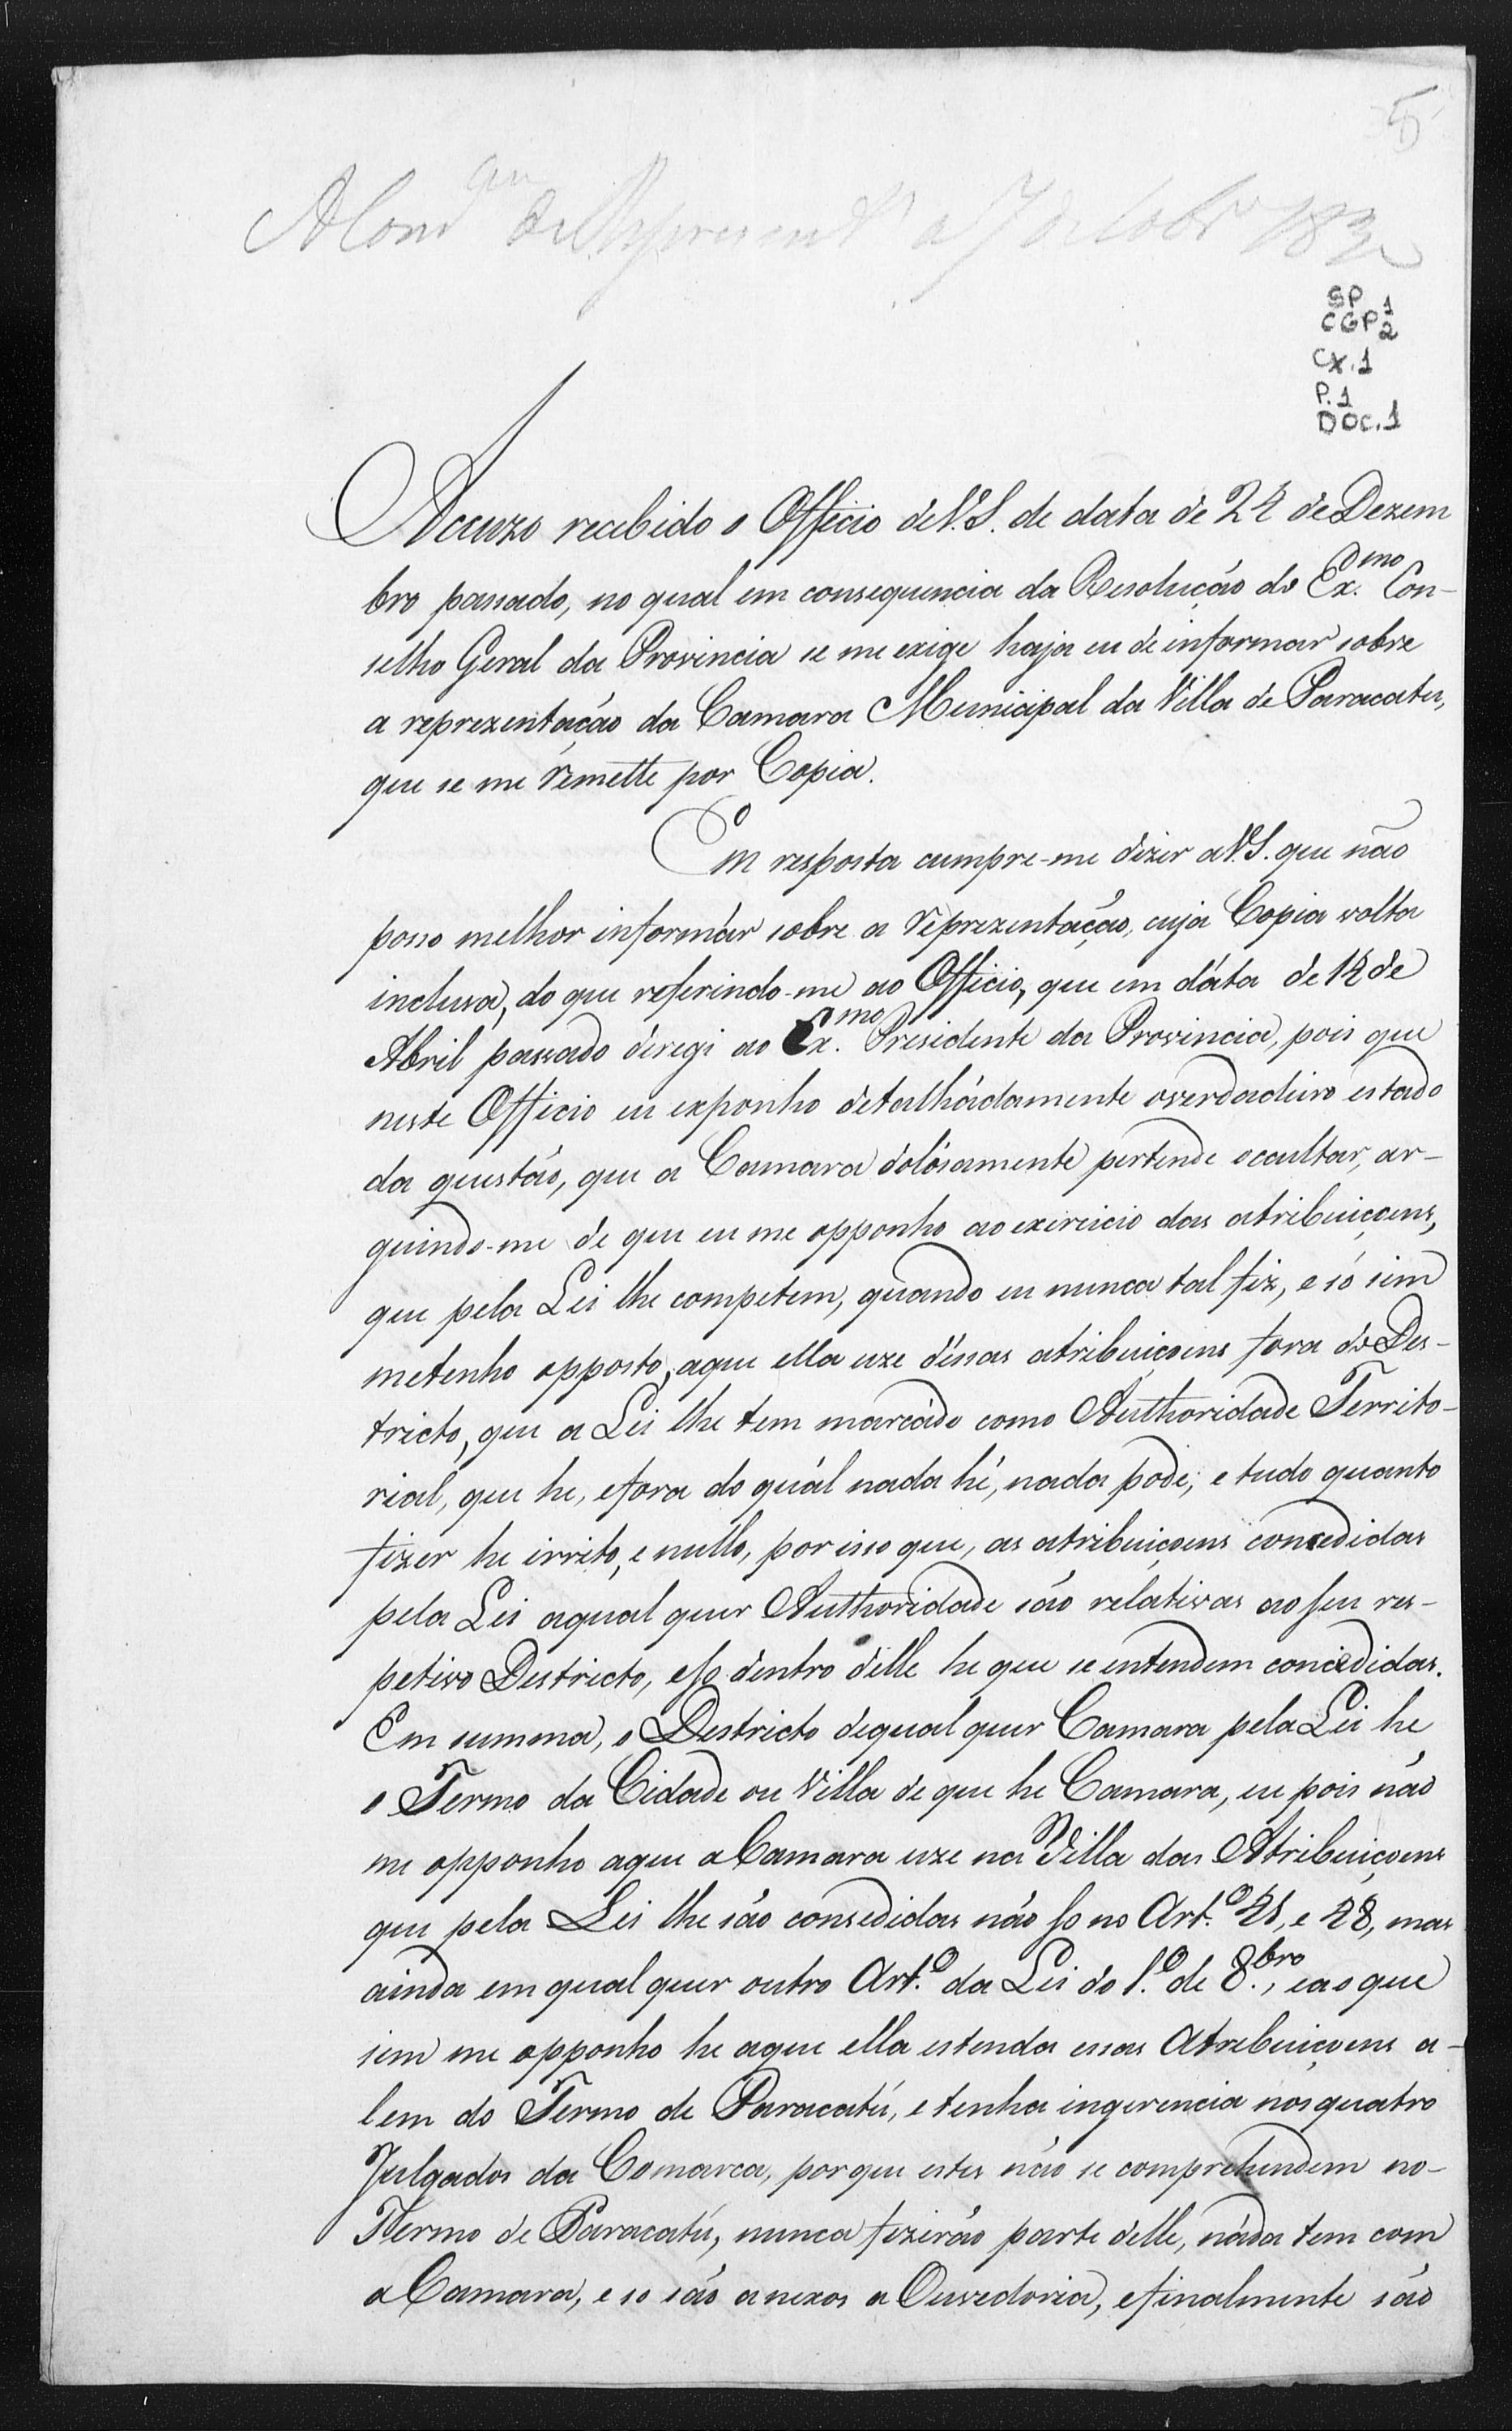 5
SP 1
CGP 2
CX. 1
P. 1
DOC. 1
Accuzo recebido o Officio de V.S. de data de 24 de Dezem
bro passado, no qual em consequencia da Resolução do Ex.mo Con-
selho Geral da Provincia se me exige haja eu de informar sobre
a reprezentação da Camara Municipal da Villa de Paracatu,
que se me remette por Copia.
Em resposta cumpre-me dizer a V.S. que não
posso melhor informár sobre a reprezentação, cuja Copia volta
inclusa, do que referindo-me ao Officio, que em dáta de 14 de
Abril passado deregi ao Ex.mo Presidente da Provincia, pois que
neste Officio eu exponho detalhádamente overdadeiro estado
da questão, que a Camara dolósamente pertende occultar, ar-
guindo-me de que eu me opponho ao exercicio das atribuiçoens,
que pela Lei lhe competem, quando eu nunca tal fiz, e só sim
metenho opposto, aque ella uze dessas atribuiçoens fora do Des-
tricto, que a Lei lhe tem marcádo como Authoridade Territo-
rial, que he, efora do quál nada hé, nada pode, e tudo quanto
fizer he irrito, e nullo, por isso que, as atribuiçoens concedidas
pela Lei aqual quer Authoridade são relativas ao seu res-
petivo Destricto, eso dentro delle he que se entendem concedidas.
Em summa, o Destricto dequal quer Camara pela Lei he
o Termo da Cidade ou Villa de que he Camara, eu pois não
me opponho aque a Camara uze na Villa das Atribuiçoens
que pela Lei lhe são consedidas não so no Art.o 41, e 48, mas
ainda em qual quer outro Art.o da Lei do 1.o de 8.bro, eao que
sim me opponho he aque ella estenda essas Atrebuiçoens a-
lem do Termo de Paracatú, e tenha ingerencia nos quatro
Julgados da Comarca, porque estes não se comprehendem no-
Termo de Paracatú, nunca fizerão parte delle, náda tem com
a Camara, e so são anexos a Ouvedoria, efinalmente são